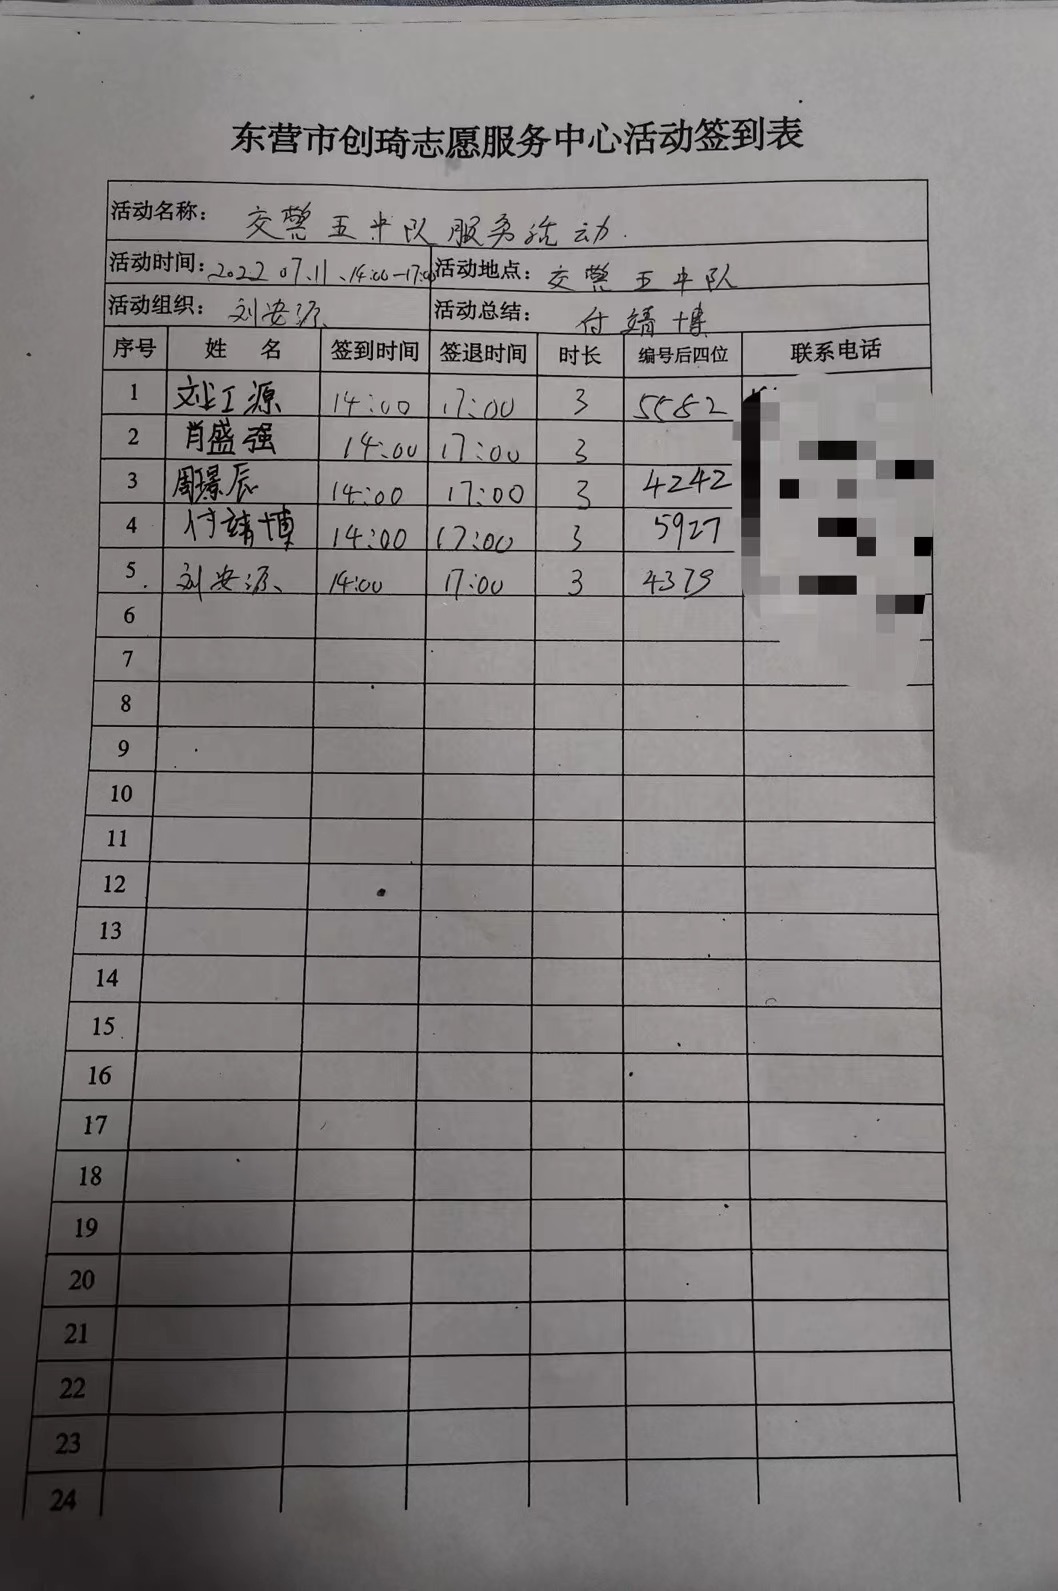 东营市创琦志愿服务中心活动签到表
活动名称： 交警五中队服务活动.
活动时间：2022.07.11、14:00-17:00 活动地点： 交警五中队
活动组织： 刘安源 活动总结： 付婧博
序号 姓 名 签到时间 签退时间 时长 编号后四位 联系电话
1 刘江源 14:00 17:00 3 5582
2 肖盛强 14:00 17:00 3
3 周璟辰 14:00 17:00 3 4242
4 付靖博 14:00 17:00 3 5927
5 刘安源 14:00 17:00 3 4379
6
7
8
9
10
11
12
13
14
15
16
17
18
19
20
21
22
23
24